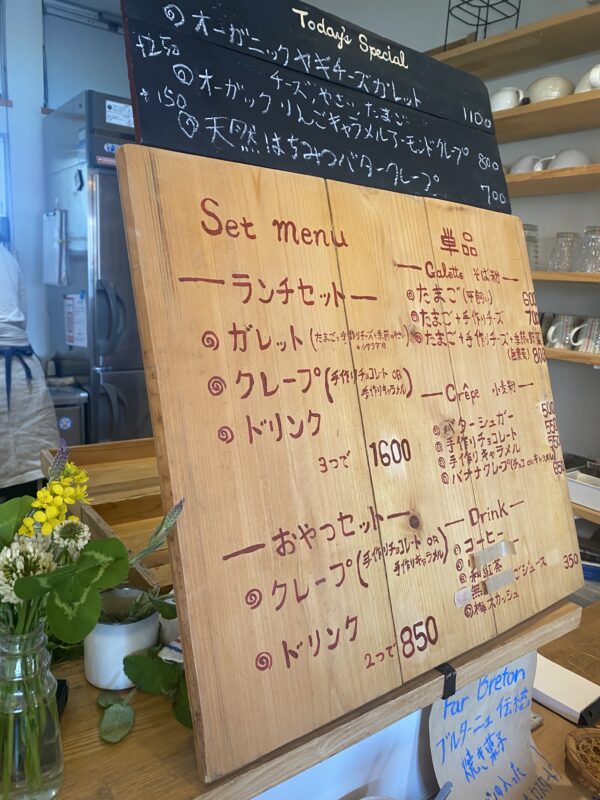 Today's Special
オーガニックヤギチーズガレット
+250 チーズ、やさい、たまご 1100
オーガニックりんごキャラメルアーモンドクレープ 800
+150
天然はちみつバタークレープ 700
Set menu
ランチセット
ガレット(たまご+手作りチーズ+季節のやさい
クレープ(手作りチョコレート OR
手作りキャラメル)
ドリンク
3つで 1600
おやつセット
クレープ(手作りチョコレート OR
手作りキャラメル)
ドリンク
2つで 850
単品
Galette そば粉
たまご(平飼い) 600
たまご+手作りチーズ
たまご+手作りチーズ+季節の野菜
(無農薬) 800
Crêpe 小麦粉
バターシュガー 500
手作りチョコレート
手作りキャラメル
バナナクレープ(チョコorキャラメル)
Drink
コーヒー
和紅茶
ごジュース 350
梅スカッシュ
Far Breton
ブルターニュ伝統
焼き菓子